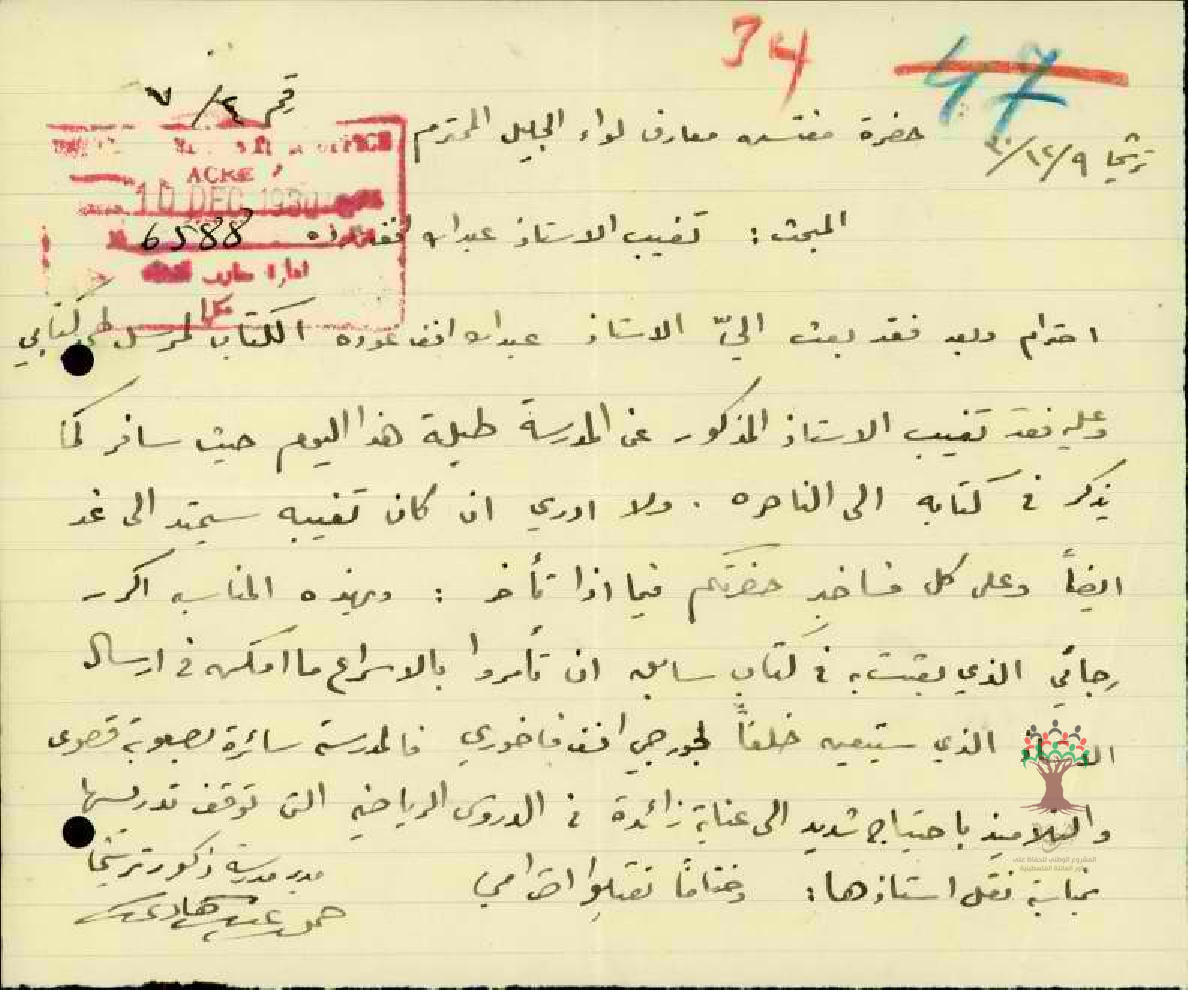 34
47
نمرة ٧/٤
ترشيحا ٩/١٢/٣٠
حضرة مفتش معارف لواء الجليل المحترم
ACRE
10 DEC 1930
6588
المبحث: تغيب الاستاذ عبدالله افندي عوده
ادارة معارف
عكا
احترام وبعد فقد بعث اليّ الاستاذ عبدالله افندي عوده الكتاب المرسل طي كتابي
وعليه فقد تغيب الاستاذ المذكور عن المدرسة طيلة هذا اليوم حيث سافر كما
يذكر في كتابه الى الناصره. ولا ادري ان كان تغيبه سيمتد الى غد
ايضاً وعلى كل فساخبر حضرتكم فيما اذا تأخر : وبهذه المناسبه اكرر
رجائي الذي بعثت به في كتاب سابق ان تأمروا بالاسراع ما امكن في ارسال
الاستاذ الذي ستعينه خلفاً لجورجي افندي فاخوري فالمدرسة سائرة بصعوبة قصوى
والتلاميذ باحتياج شديد الى عناية زائدة في الدروس الرياضيه التي توقف تدريسها
بمناسبة نقل استاذها: وختاماً تقبلوا احترامي
مدير مدرسة ذكور ترشيحا
المشروع الوطني للحفاظ على